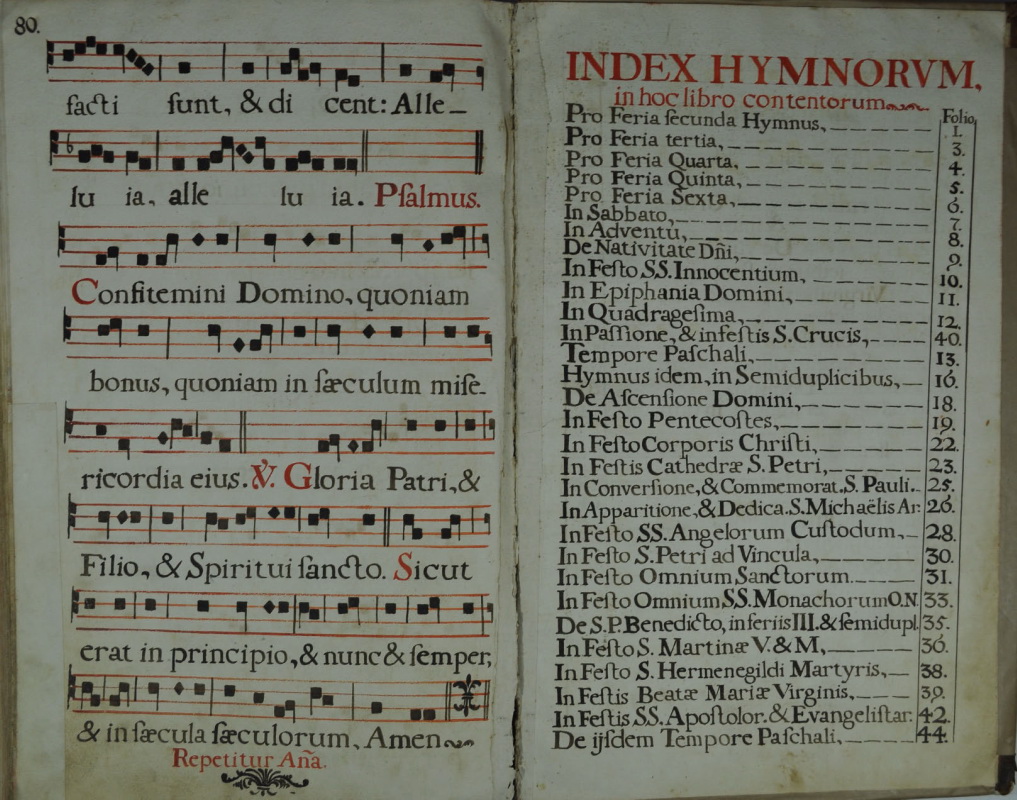 80.
facti sunt, & di cent: Alle_
lu ia, alle lu ia. Psalmus.
Confitemini Domino, quoniam
bonus, quoniam in sæculum mise-
ricordia eius. ℣. Gloria Patri, &
Filio, & Spiritui sancto. Sicut
erat in principio, & nunc & semper,
& in sæcula sæculorum, Amen
Repetitur Aña.
INDEX HYMNORVM,
in hoc libro contentorum
Folio
Pro Feria secunda Hymnus, 1.
Pro Feria tertia, 3.
Pro Feria Quarta, 4.
Pro Feria Quinta, 5.
Pro Feria Sexta, 6.
In Sabbato, 7.
In Adventu, 8.
De Nativitate Dñi, 9.
In Festo SS. Innocentium, 10.
In Epiphania Domini, 11.
In Quadragesima, 12.
In Passione, & in festis S. Crucis, 40.
Tempore Paschali, 13.
Hymnus idem, in Semiduplicibus, 16.
De Ascensione Domini, 18.
In Festo Pentecostes, 19.
In Festo Corporis Christi, 22.
In Festis Cathedræ S. Petri, 23.
In Conversione, & Commemorat. S. Pauli. 25.
In Apparitione, & Dedica. S. Michaëlis Ar. 26.
In Festo SS. Angelorum Custodum, 28.
In Festo S. Petri ad Vincula, 30.
In Festo Omnium Sanctorum 31.
In Festo Omnium SS. Monachorum O.N. 33.
De S.P. Benedicto, in feriis III. & semidupl. 35.
In Festo S. Martinæ V. & M, 36.
In Festo S. Hermenegildi Martyris, 38.
In Festis Beatæ Mariæ Virginis, 39.
In Festis SS. Apostolor. & Evangelistar. 42.
De ijsdem Tempore Paschali, 44.